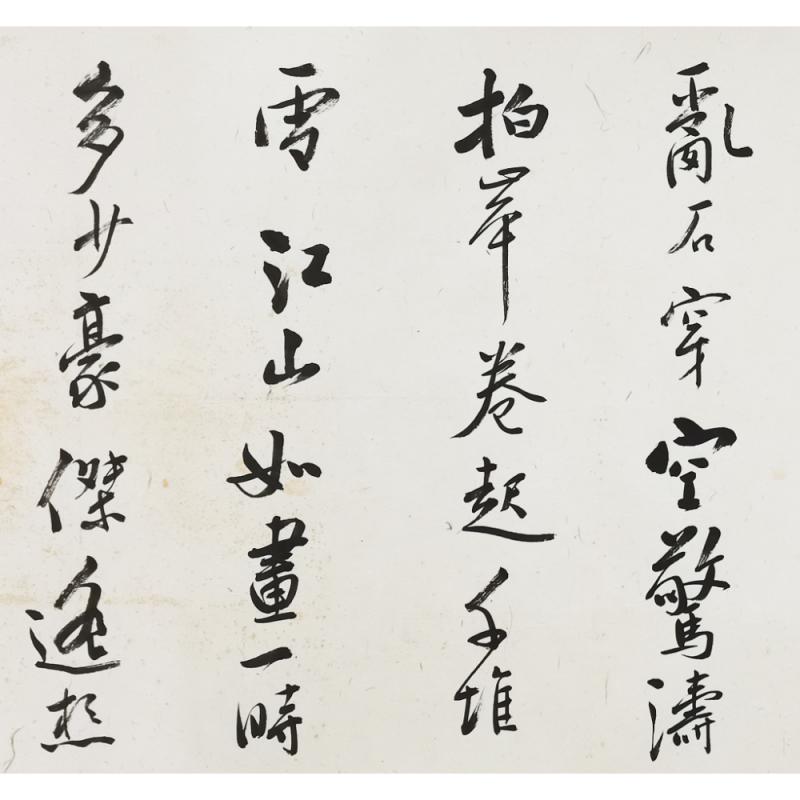 亂石穿空驚濤
拍岸卷起千堆
雪江山如畫一時
多少豪傑遙想